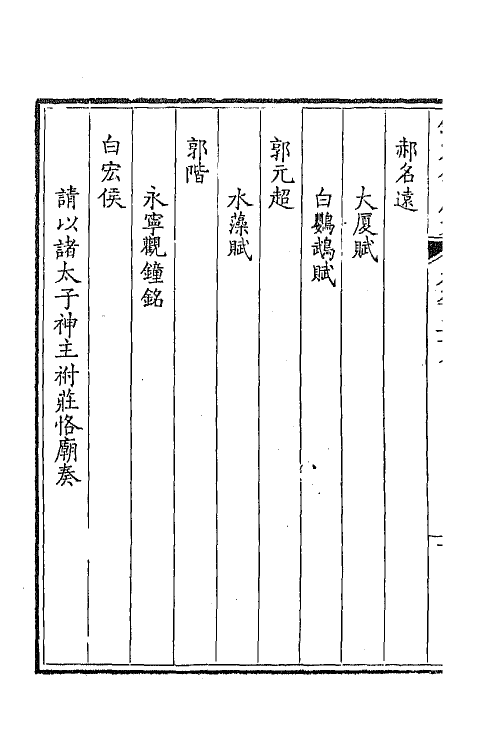 郝名遠
大厦賦
白鸚鵡賦
郭元超
水藻賦
郭階
永寧觀鐘銘
白宏儇
請以諸太子神主祔莊恪廟奏